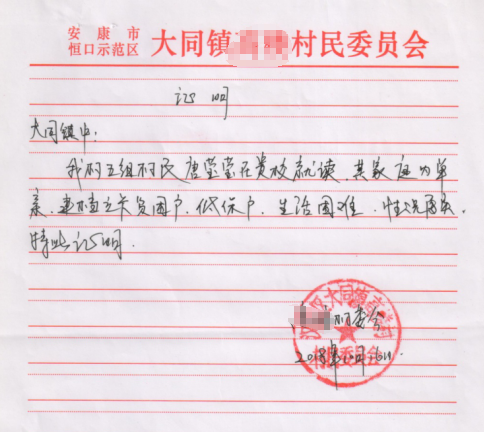 安康市
恒口示范区 大同镇 村民委员会
证明
大同镇中:
我村五组村民唐莹莹在贵校就读,其家庭为单
亲,建档立卡贫困户,低保户,生活困难,情况属实。
特此证明.
村委会
2018年10月16日.
村民委员会